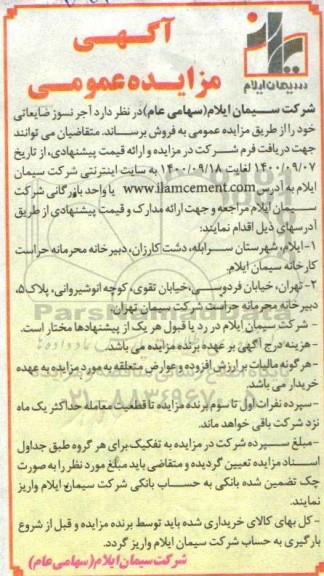 آگهی
مزایده عمومی
سیمان ایلام
شرکت سیمان ایلام (سهامی عام) در نظر دارد آجر نسوز ضایعاتی
خود را از طریق مزایده عمومی به فروش برساند. متقاضیان می توانند
جهت دریافت فرم شرکت در مزایده و ارائه قیمت پیشنهادی، از تاریخ
۱۴۰۰/۰۹/۰۷ لغایت ۱۴۰۰/۰۹/۱۸ به سایت اینترنتی شرکت سیمان
ایلام به آدرس www.ilamcement.com یا واحد بازرگانی شرکت
سیمان ایلام مراجعه و جهت ارائه مدارک و قیمت پیشنهادی از طریق
آدرسهای ذیل اقدام نمایند:
۱-ایلام، شهرستان سرابله، دشت کارزان، دبیرخانه محرمانه حراست
کارخانه سیمان ایلام.
۲- تهران، خیابان فردوسی، خیابان تقوی، کوچه انوشیروانی، پلاک۵،
دبیرخانه محرمانه حراست شرکت سیمان تهران.
- شرکت سیمان ایلام در رد یا قبول هر یک از پیشنهادها مختار است.
- هزینه درج آگهی بر عهده برنده مزایده می باشد.
- هرگونه مالیات بر ارزش افزوده و عوارض متعلقه به مورد مزایده به عهده
خریدار می باشد.
-سپرده نفرات اول تا سوم برنده مزایده تا قطعیت معامله حداکثر یک ماه
نزد شرکت باقی خواهد ماند.
-مبلغ سپرده شرکت در مزایده به تفکیک برای هر گروه طبق جداول
اسناد مزایده تعیین گردیده و متقاضی باید مبلغ مورد نظر را به صورت
چک تضمین شده بانکی به حساب بانکی شرکت سیمان ایلام واریز
نمایند.
-کل بهای کالای خریداری شده باید توسط برنده مزایده و قبل از شروع
بارگیری به حساب شرکت سیمان ایلام واریز گردد.
شرکت سیمان ایلام (سهامی عام)
ParsNamadData
۰۲۱-۸۸۳۴۹۶۷۰